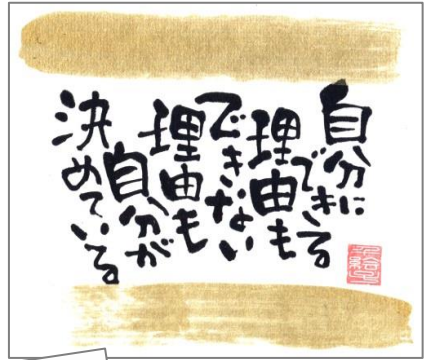 自分に
できる
理由も
できない
理由も
自分が
決めている